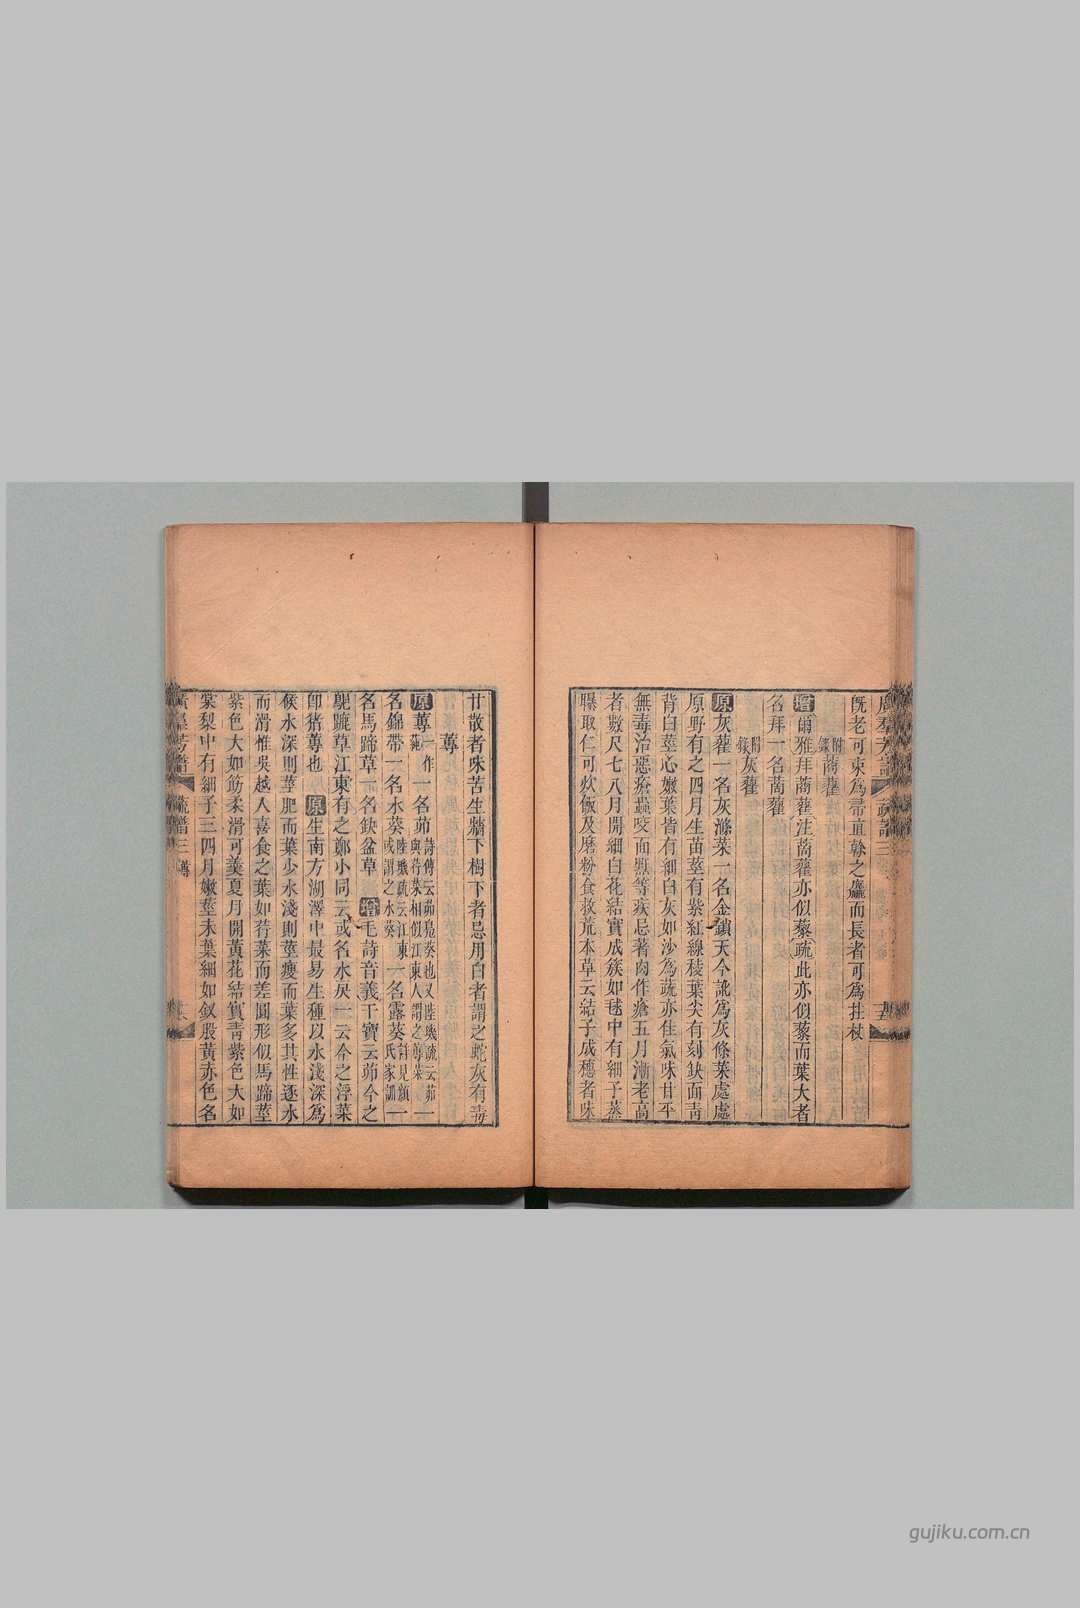 廣羣芳譜 蔬譜三
既老可束爲帚直榦之麤而長者可爲拄杖
附錄蔏藋
增爾雅拜蔏藋注蔏藋亦似藜疏此亦似藜而葉大者
名拜一名蔏藋
附錄灰藋
原灰藋一名灰滌菜一名金鎖天今訛爲灰條菜處處
原野有之四月生苗莖有紫紅線稜葉尖有刻缺面青
背白莖心嫩葉皆有細白灰如沙爲蔬亦佳氣味甘平
無毒治惡瘡蟲咬面䵟等疾忌著肉作瘡五月漸老高
者數尺七八月開細白花結實成簇如毬中有細子蒸
曝取仁可炊飯及磨粉食救荒本草云結子成穗者味
甘散者味苦生牆下樹下者忌用白者謂之蛇灰有毒
蓴
原蓴一作蒓一名茆詩傳云茆鳧葵也又陸璣疏云茆與荇菜相似江東人謂之蓴菜一
名錦帶一名水葵陸璣疏云江東或謂之水葵一名露葵詩見顏氏家訓一
名馬蹄草一名缺盆草 增毛詩音義干寶云茆今之
䳿蹗草江東有之鄭小同云或名水戾一云今之浮菜
卽猪蓴也 原生南方湖澤中最易生種以水淺深爲
候水深則莖肥而葉少水淺則莖瘦而葉多其性逐水
而滑惟吳越人喜食之葉如荇菜而差圓形似馬蹄莖
紫色大如筯柔滑可羹夏月開黃花結實靑紫色大如
棠梨中有細子三四月嫩莖未葉細如釵股黃赤色名
廣羣芳譜 蔬譜三 蓴
gujiku.com.cn